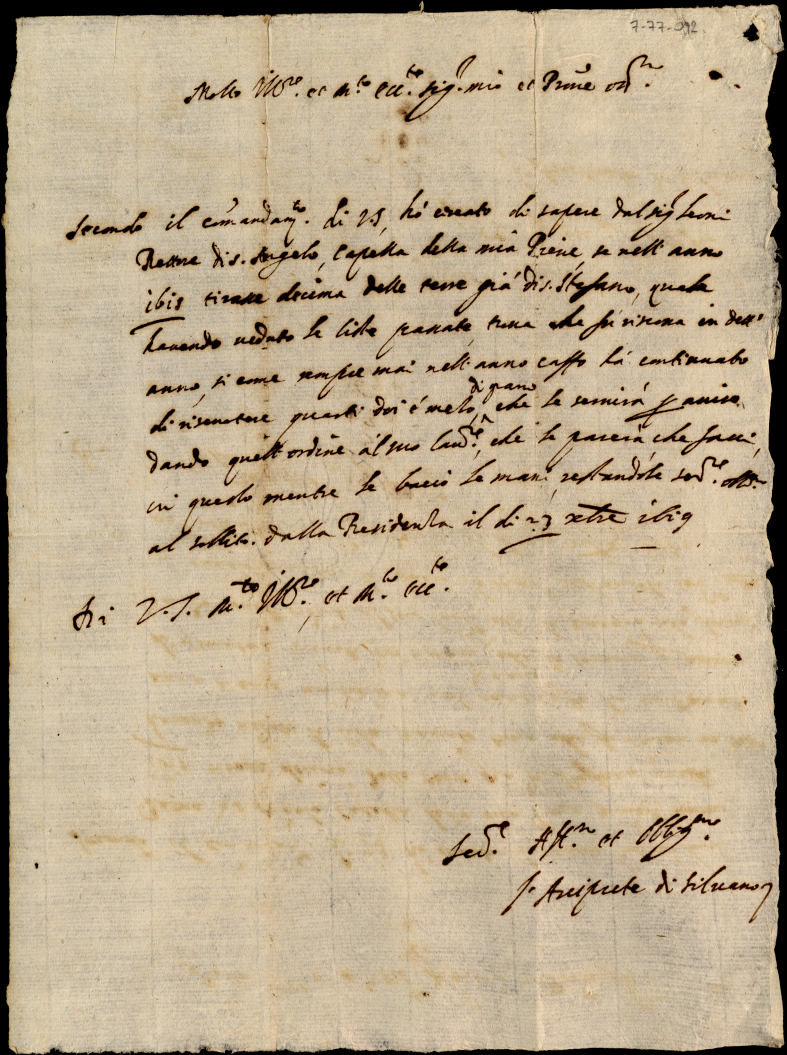 7-77-092
Molto Ill.re et M.to ecc.te sig.r mio et Prone oss.mo
Secondo il comandam.to di V.S. hò cercato di sapere dal sig.r Leoni
Rettore di S. Angelo, Capella della mia Pieve, se nell'anno
1618 tirasse decima delle terre già di S. Stefano, quale
havendo veduto le liste passate, trova che fù riscossa in dett'
anno, si come sempre mai nell'anno caffo hà continuato
di riscuotere quarti doi è mezo, di grano che le servirà p aviso
dando quell'ordine al suo Lau.re, che le parerà, che facci,
in questo mentre le bacio le mani, restandole ser.re
al solito. dalla Residenza il di 23 xbre 1619
Di V.S. M.to Ill.re, et M.to ecc.te
Ser.re Aff.mo et Obblig.mo
l'Arciprete di Silvano